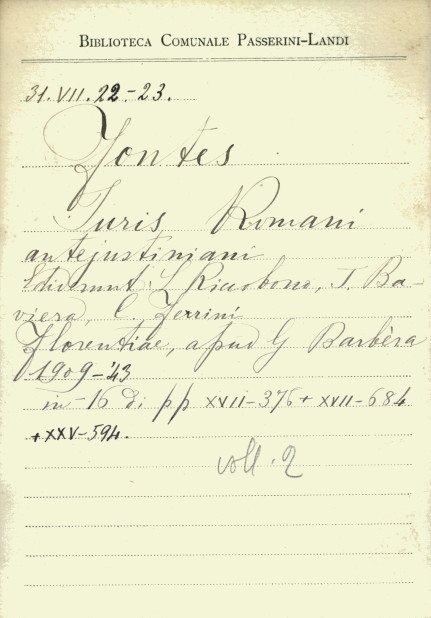 BIBLIOTECA COMUNALE PASSERINI-LANDI
31.VII.22-23.
Fontes
Iuris Romani
antejustiniani
Ediderunt S. Ricobono, I. Ba-
viera, C. Ferrini
Florentiae, apud G Barbèra
1909-'43
in-16 di pp XVII-376+XVII-684
+XXV-594.
voll. 2